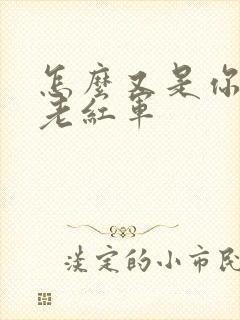 怎麼又是你
老紅軍
淡定的小市民